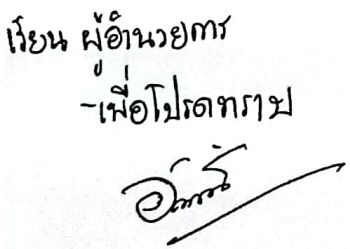 เรียน ผู้อำนวยการ
-เพื่อโปรดทราบ